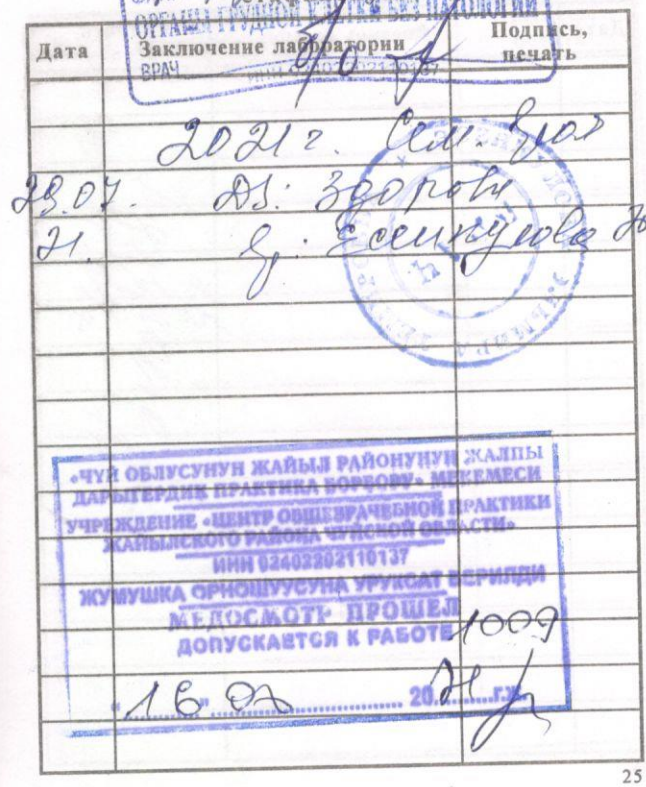 ОРГАНЫ ГРУДНОЙ КЛЕТКИ БЕЗ ПАТОЛОГИИ
Дата Заключение лаборатории Подпись, печать
ВРАЧ ИНН 02402202110137
2021 г. Сем. врач
29.07. Ds: Здорова
21.
«ЧҮЙ ОБЛУСУНУН ЖАЙЫЛ РАЙОНУНУН ЖАЛПЫ
ДАРЫГЕРДИК ПРАКТИКА БОРБОРУ» МЕКЕМЕСИ
УЧРЕЖДЕНИЕ «ЦЕНТР ОБЩЕВРАЧЕБНОЙ ПРАКТИКИ
ЖАЙЫЛСКОГО РАЙОНА ЧУЙСКОЙ ОБЛАСТИ»
ИНН 02402202110137
ЖУМУШКА ОРНОШУУСУНА УРУКСАТ БЕРИЛДИ
МЕДОСМОТР ПРОШЕЛ
ДОПУСКАЕТСЯ К РАБОТЕ 1009
"16" 07 2021 г.ж.
25